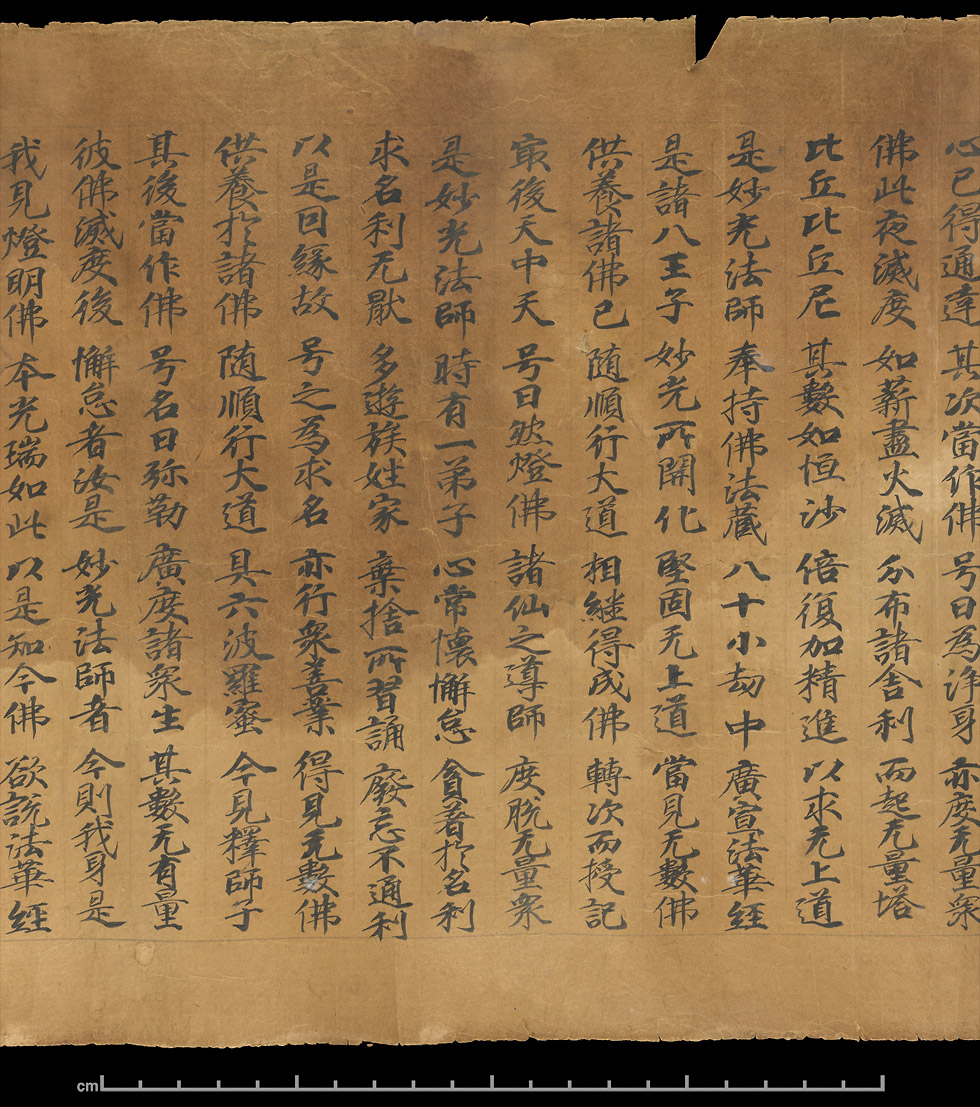 心已得通達 其次當作佛 号曰為淨身 亦度无量衆
佛此夜滅度 如薪盡火滅 分布諸舍利 而起无量塔
比丘比丘尼 其數如恒沙 倍復加精進 以求无上道
是妙光法師 奉持佛法藏 八十小劫中 廣宣法華經
是諸八王子 妙光所開化 堅固无上道 當見无數佛
供養諸佛已 随順行大道 相継得成佛 轉次而授記
冣後天中天 号曰然燈佛 諸仙之導師 度脱无量衆
是妙光法師 時有一弟子 心常懷懈怠 貪著扵名利
求名利无猒 多遊族姓家 棄捨所習誦 廢忘不通利
以是因緣故 号之為求名 亦行衆善業 得見无數佛
供養扵諸佛 随順行大道 具六波羅蜜 今見釋師子
其後當作佛 号名曰弥勒 廣度諸衆生 其數无有量
彼佛滅度後 懈怠者汝是 妙光法師者 今則我身是
我見燈明佛 本光瑞如此 以是知今佛 欲說法華經
cm